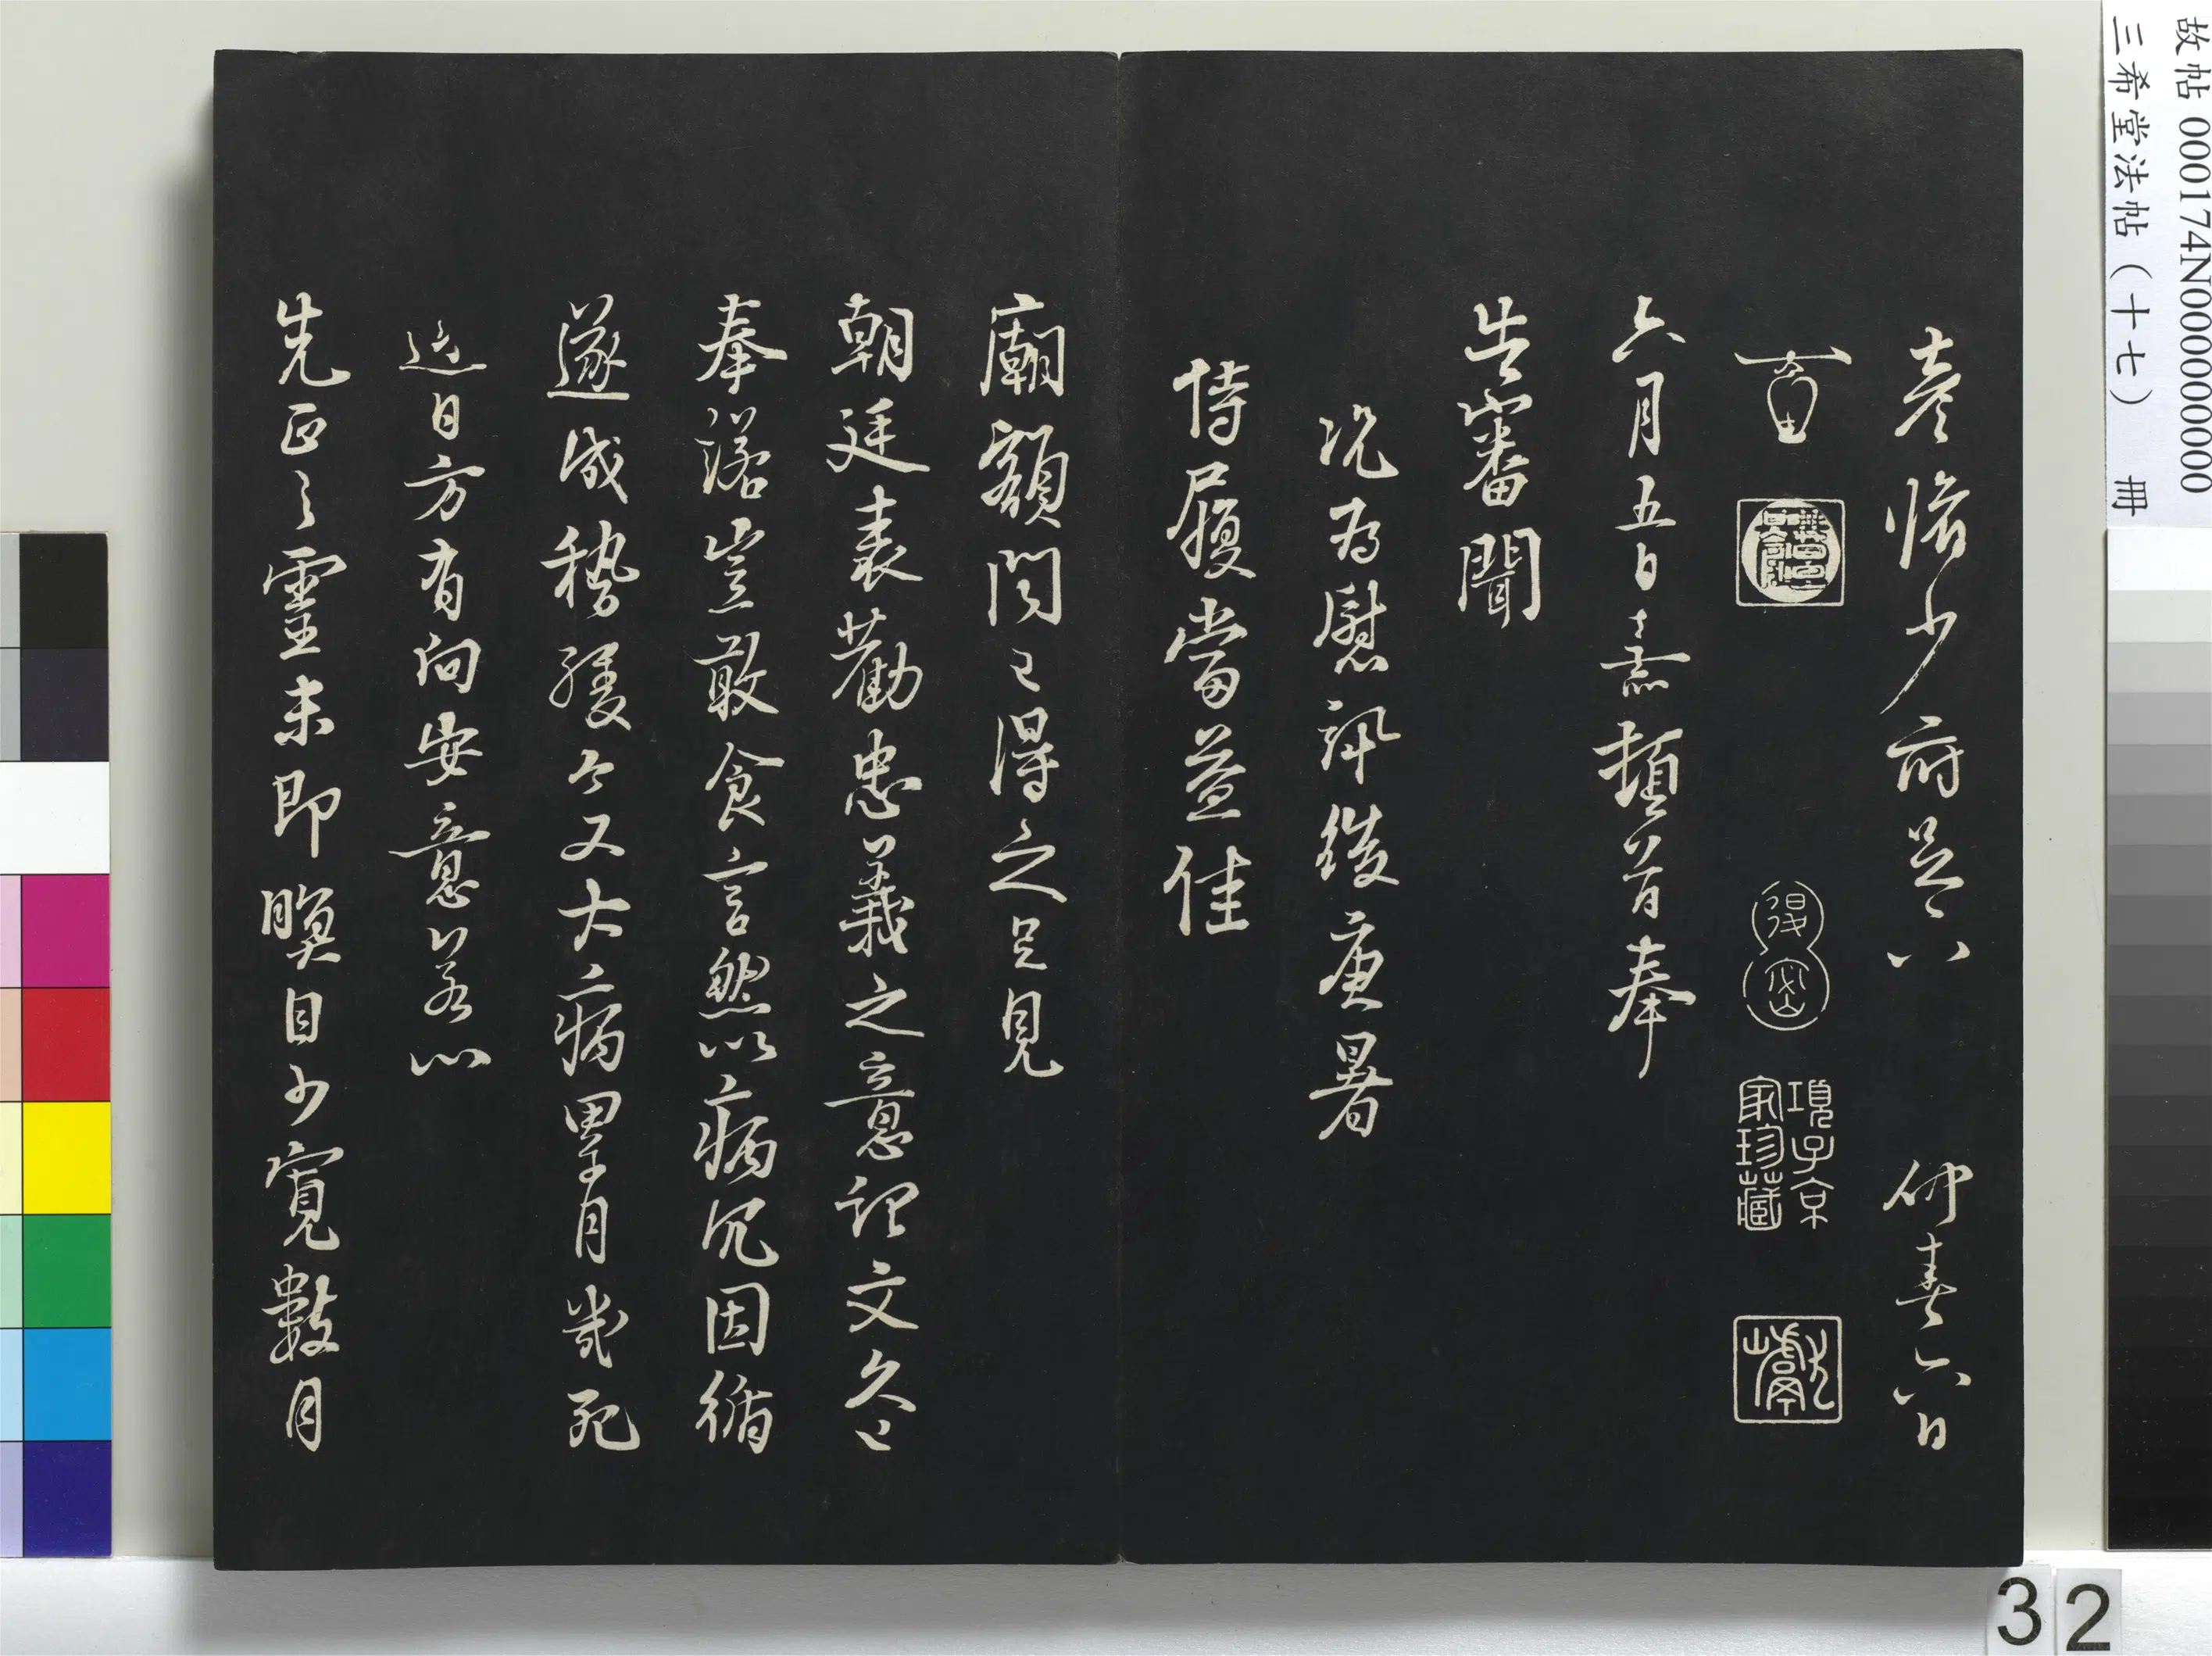 彥脩少府足下 仲春六日
項子京
家珍藏
六月五日熹頓首奉
告審聞
況為慰訊後庚暑
侍履當益佳
廟額聞已得之足見
朝廷表勸忠義之意記文久已
奉諾豈敢食言然以病冗因循
遂成稽緩今又大病累月幾死
近日方有向安意若
先正之靈未即瞑目少寬數月
故帖 000174N000000000
三希堂法帖（十七） 冊
32